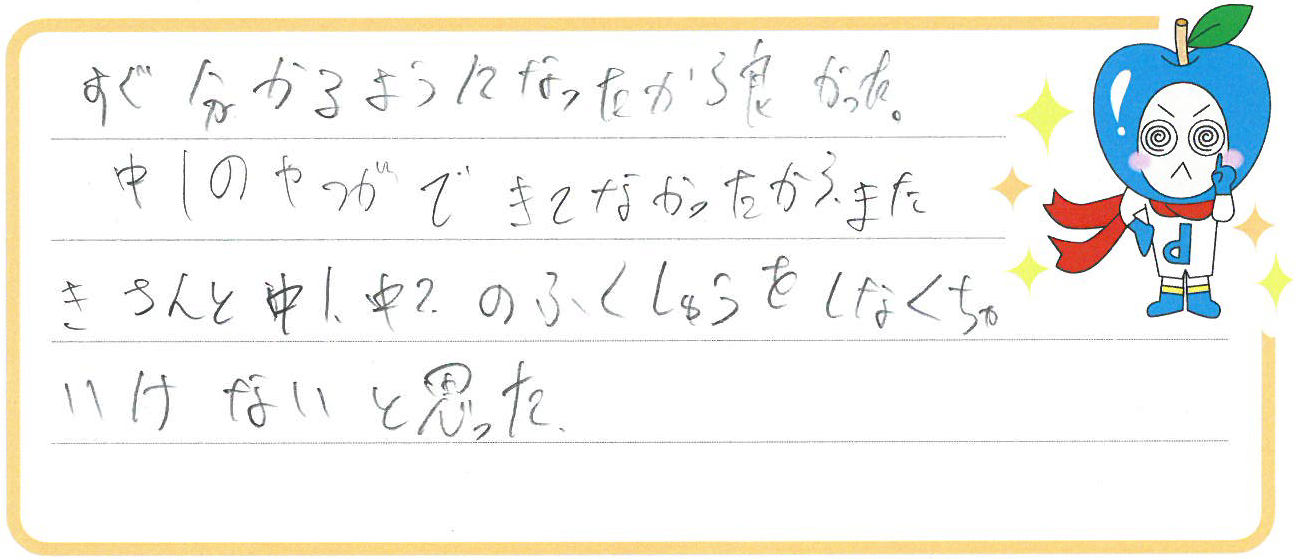 すぐ分かるようになったから良かった。
中1のやつができてなかったから、また
きちんと中1、中2のふくしゅうをしなくちゃ
いけないと思った、
P